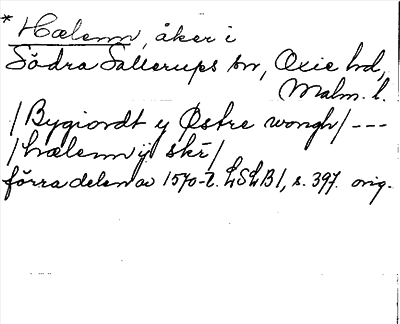 * Hælenn, åker i
Södra Sallerups sn, Oxie hd,
Malm. l.
/Bygiordt y Østre wongh/ ---
/hælenn ij skr/
förra delen av 1570-t. LSLB1, s. 397. orig.